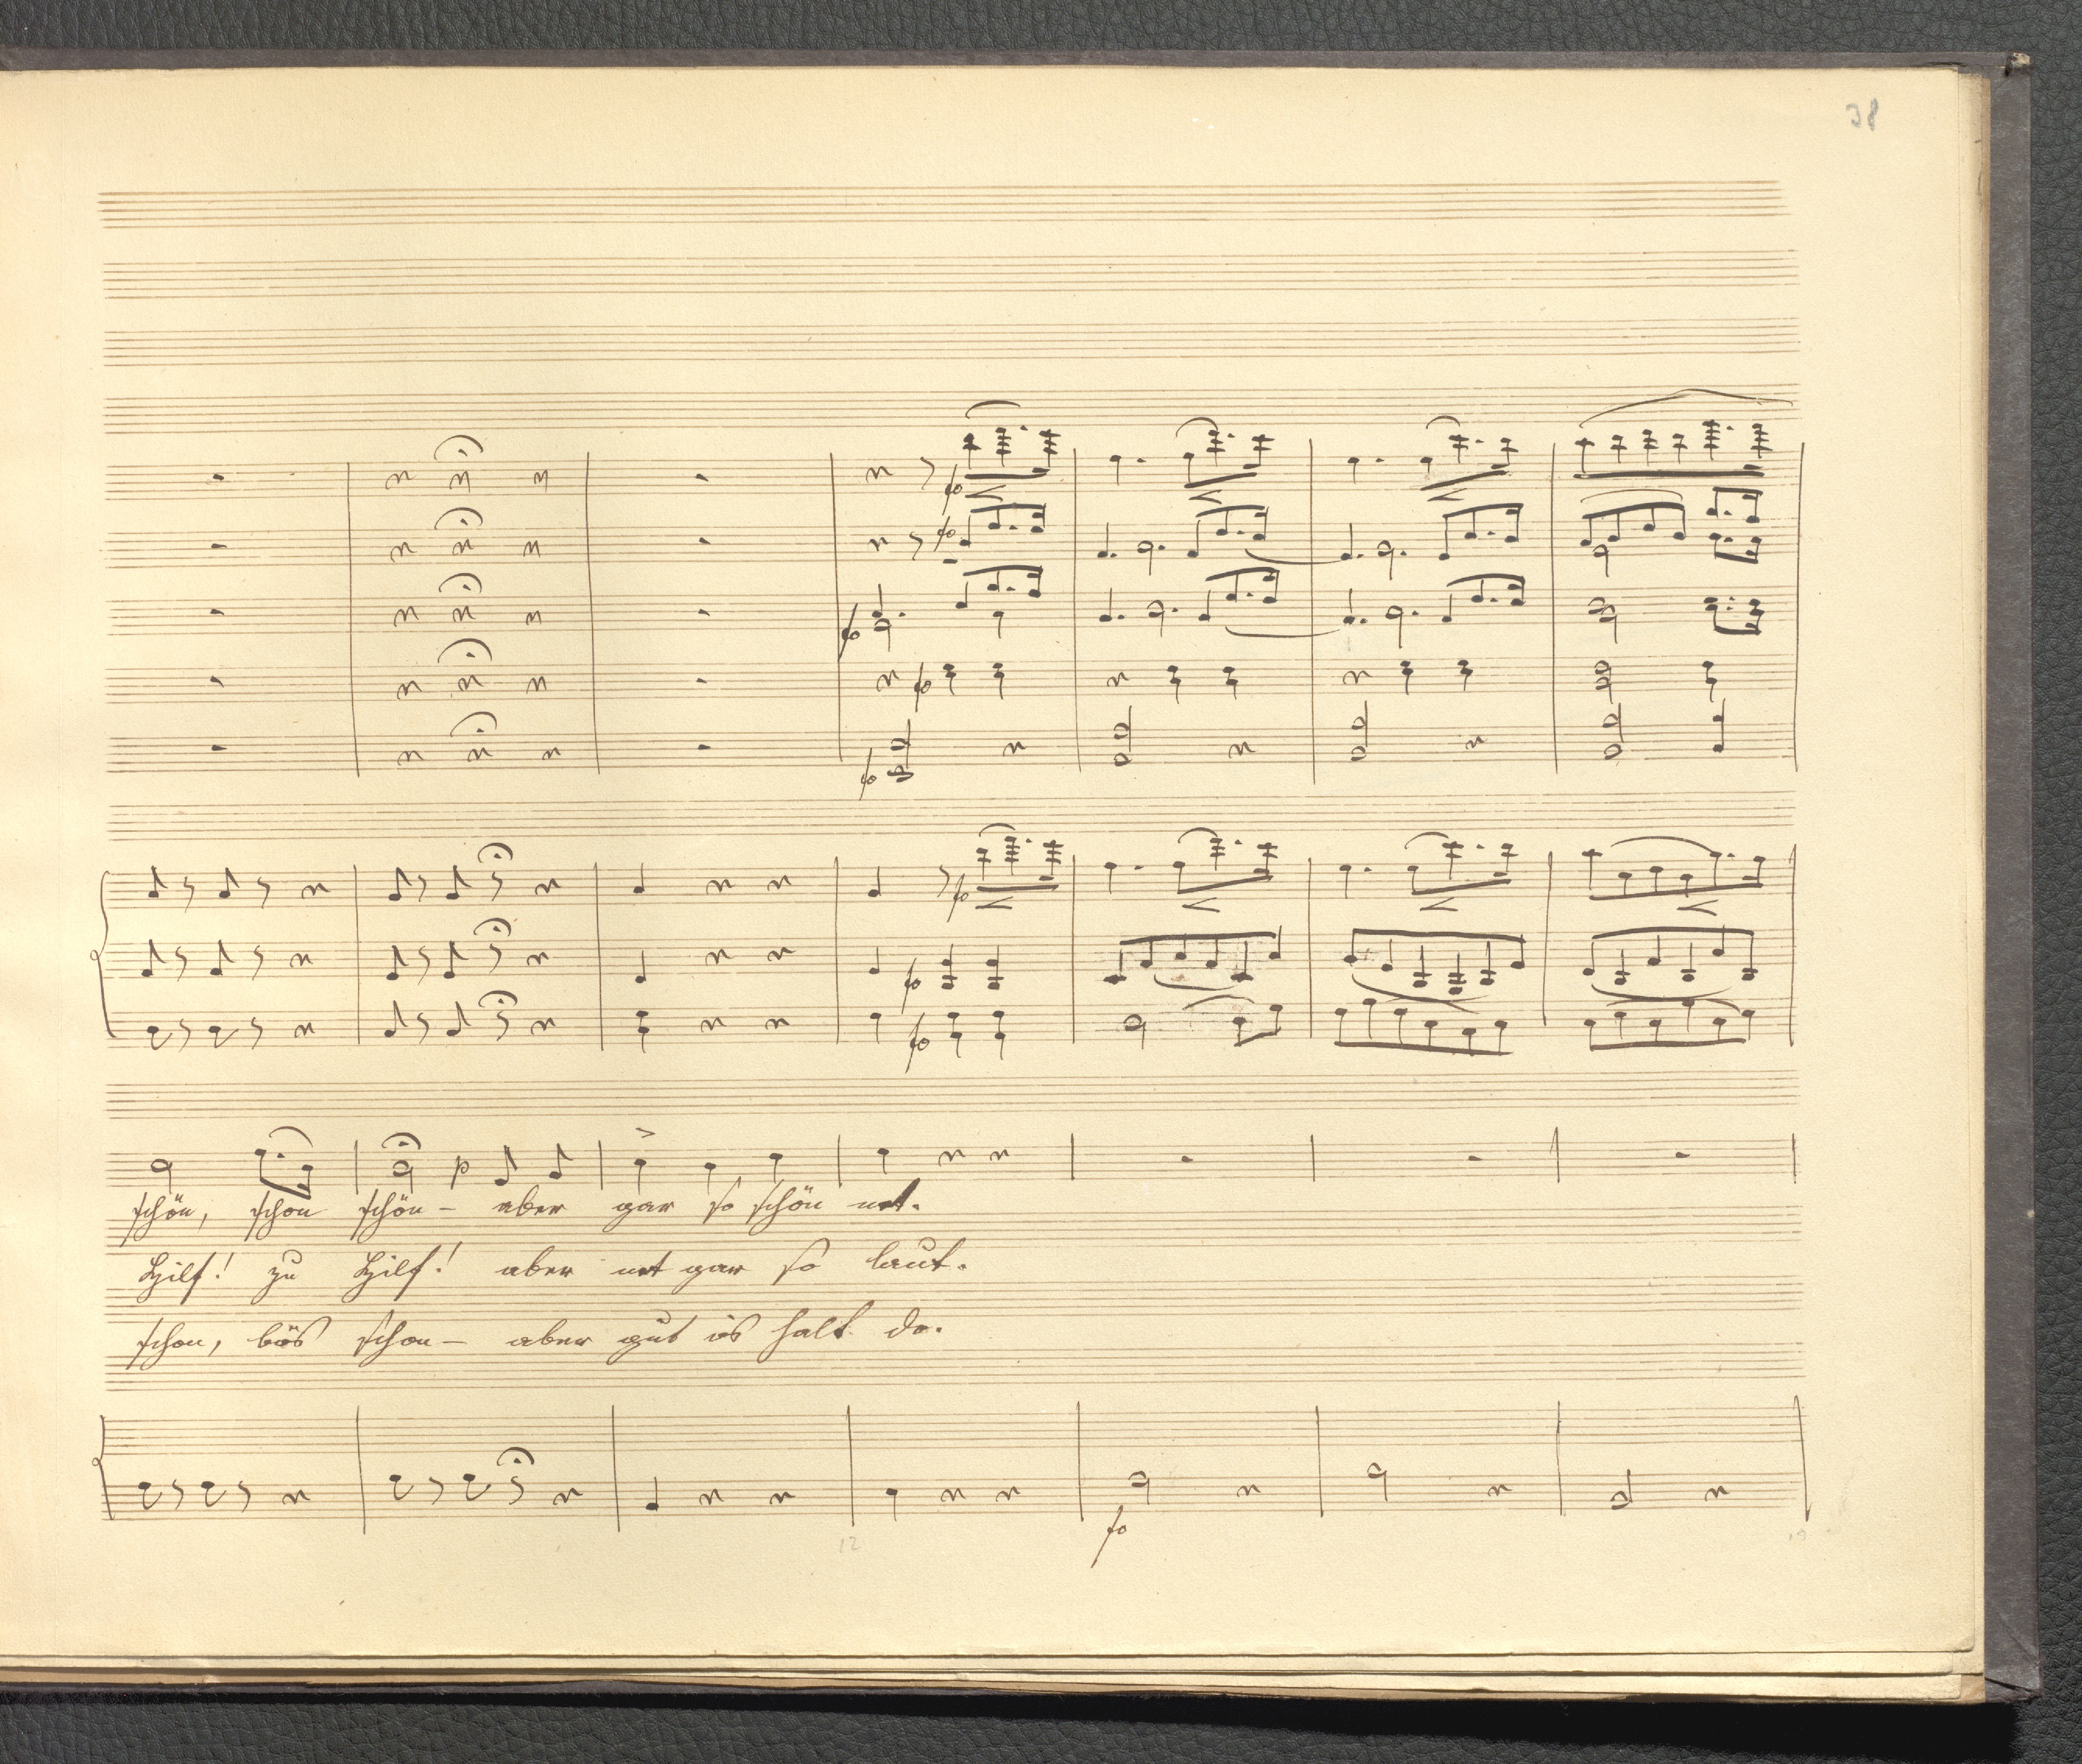 38
fo
fo
fo
fo
fo
fo
fo
fo
p
schön, schon schön - aber gar so schön net.
Hilf! zu Hilf! aber net gar so laut.
schon, bös schon - aber gut is halt do.
fo
12